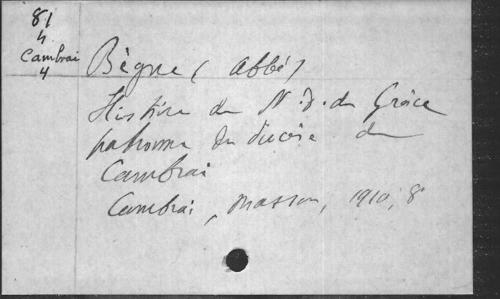 81
4
Cambrai
4
Bègne (Abbé)
Histoire de N.D. de Grâce
patronne du diocèse de
Cambrai
Cambrai, Masson, 1910, 8°